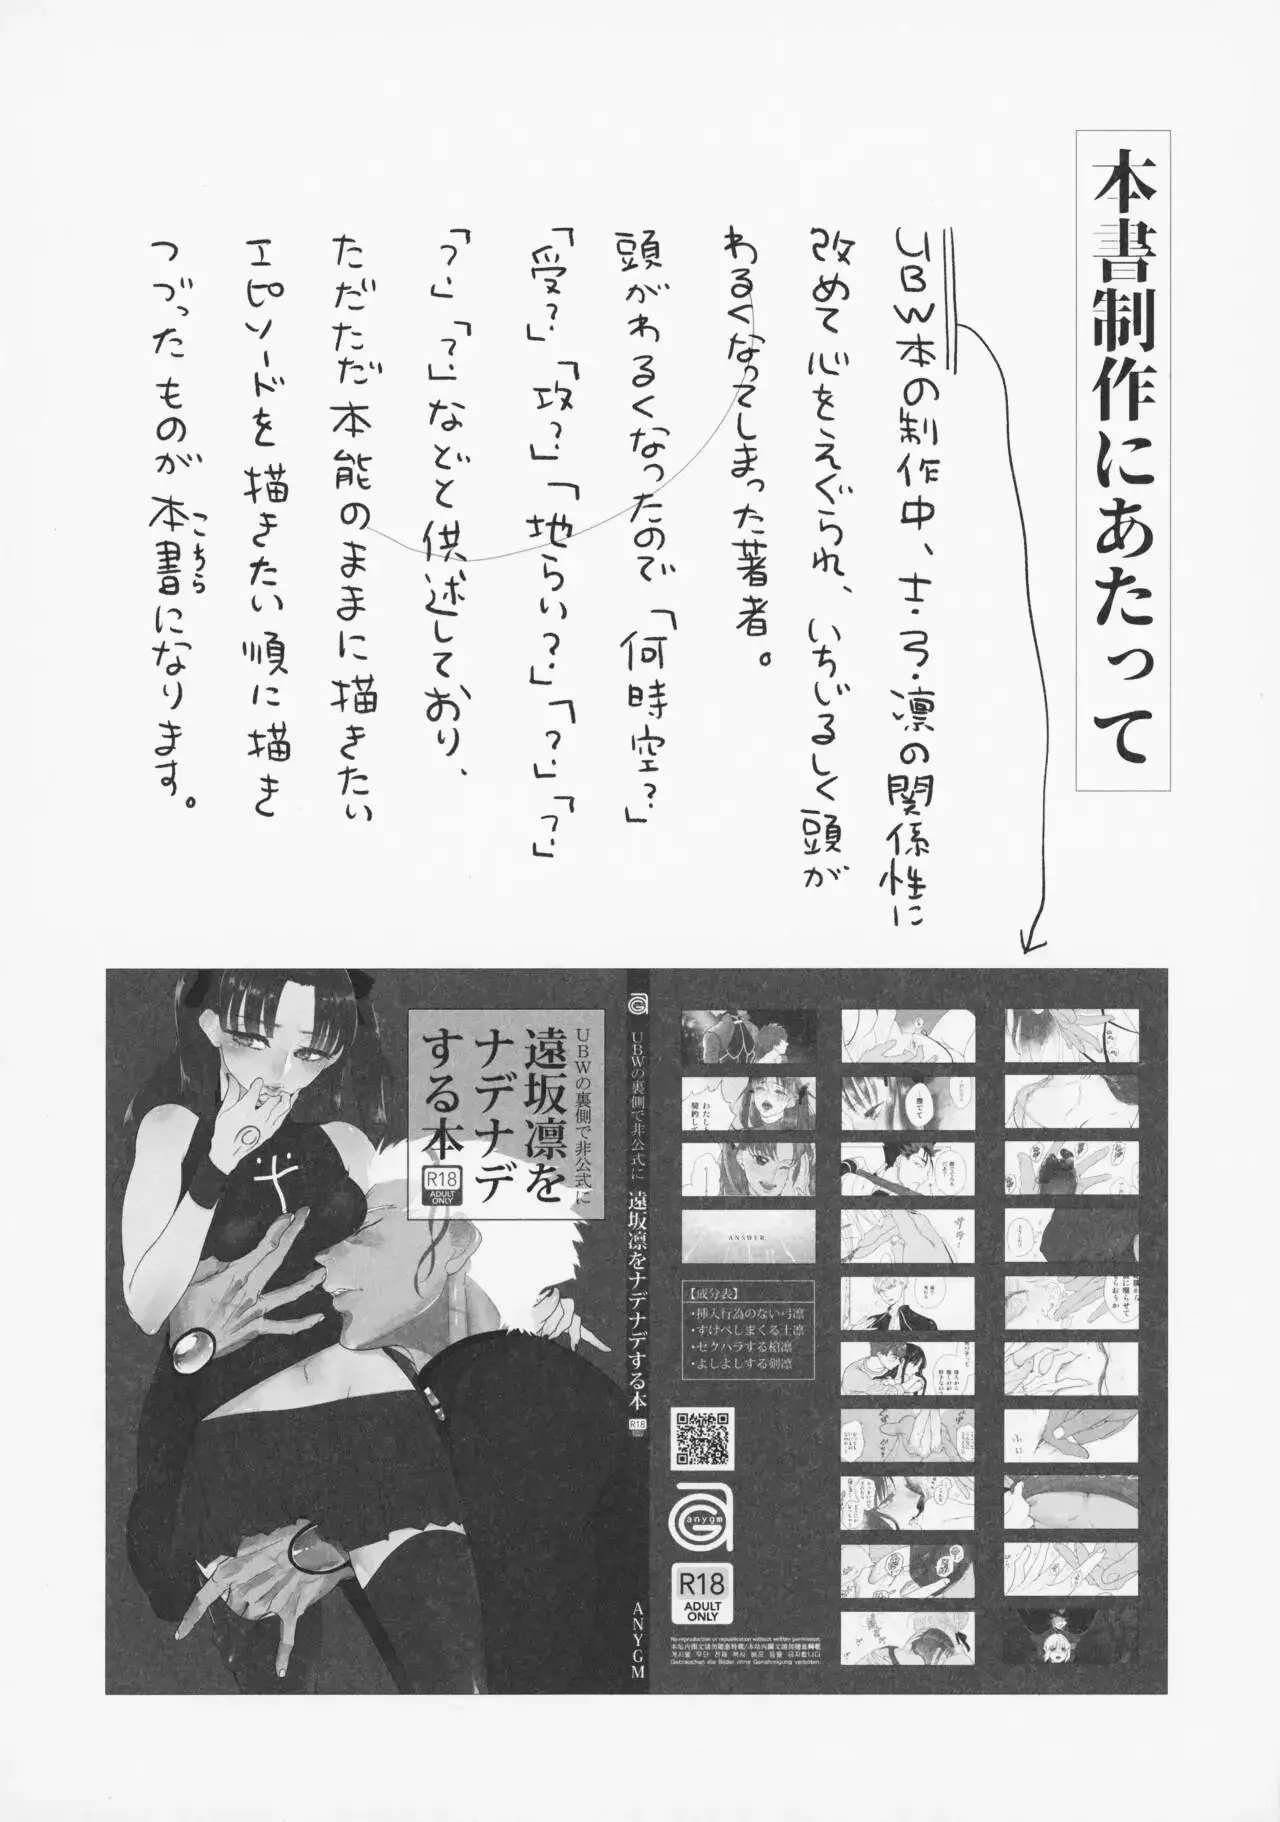 本書制作にあたって
UBW本の制作中、士・弓・凛の関係性に
改めて心をえぐられ、いちじるしく頭が
わるくなってしまった著者。
頭がわるくなったので「何時空?」
「受?」「攻?」「地らい?」「?」「?」
「?」「?」などと供述しており、
ただただ本能のままに描きたい
エピソードを描きたい順に描き
つづったものが本書になります。
こちら
UBWの裏側で非公式に
遠坂凛を
ナデナデ
する本
R18
ADULT
ONLY
UBWの裏側で非公式に 遠坂凛をナデナデする本
R18
ANYGM
わたしと
契約して
ANSWER
【成分表】
・挿入行為のない弓凛
・すけべしまくる士凛
・セクハラする槍凛
・よしよしする剣凛
anygm
R18
ADULT
ONLY
No reproduction or republication without written permission.
Gebrauchen die Bilder ohne Genehmigung verboten.
捨てて